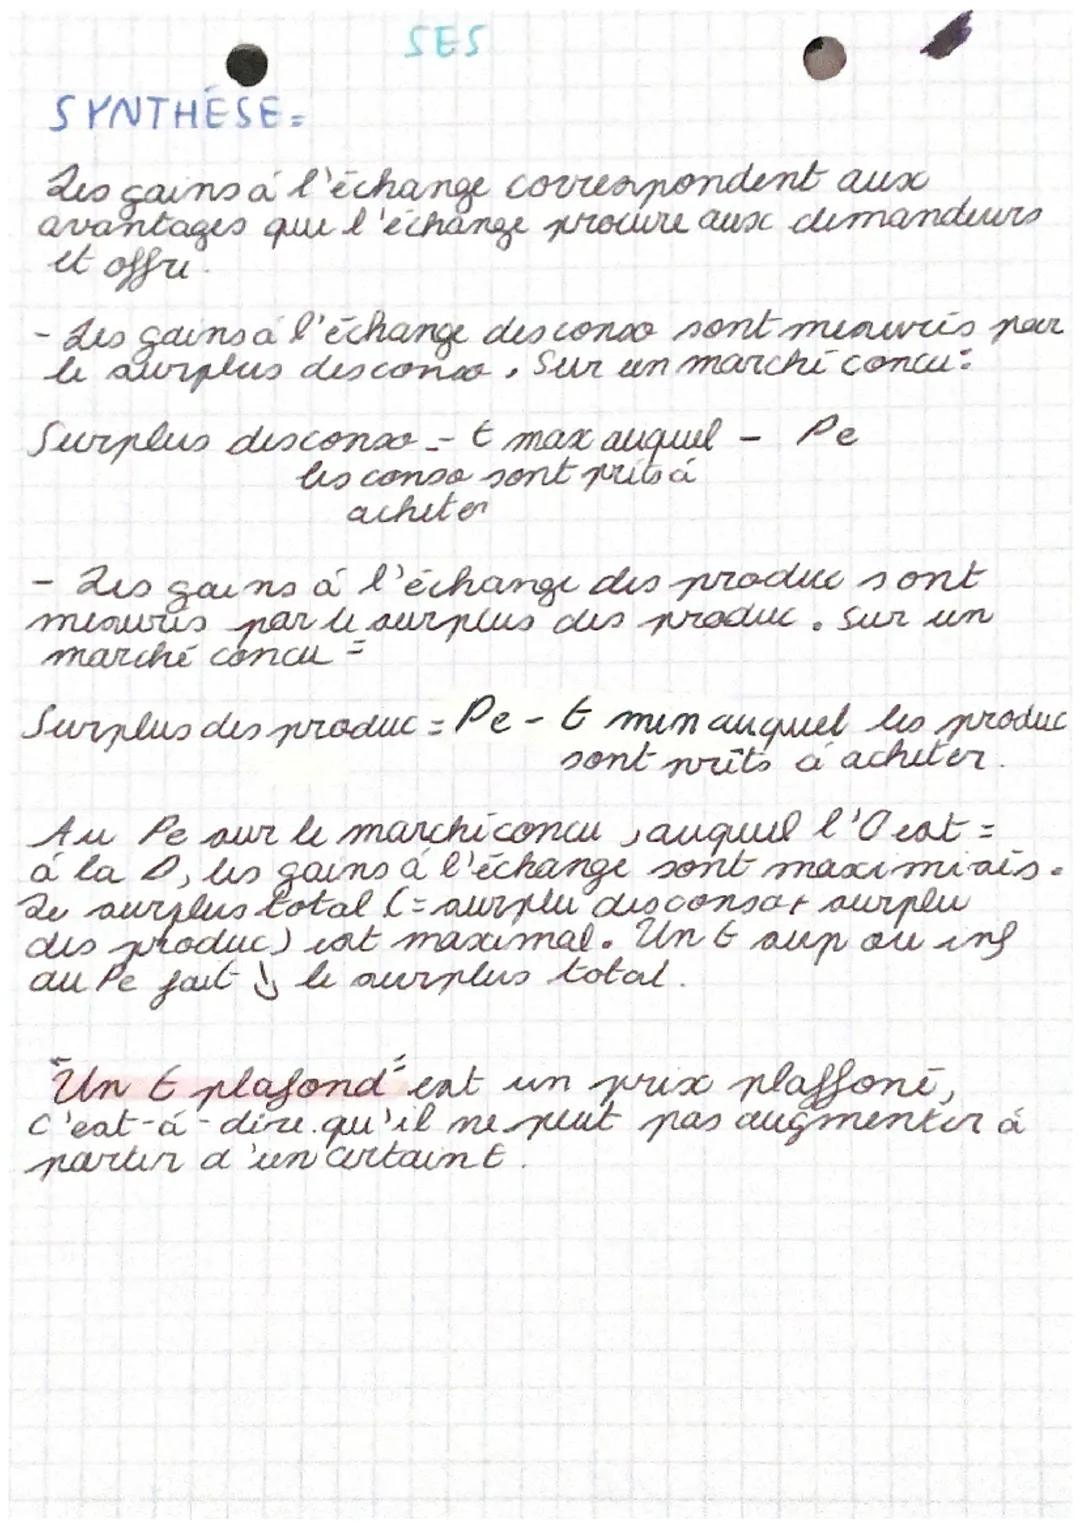 SES
SYNTHÈSE =
Les gains à l'échange correspondent aux
avantages que l'échange procure aux demandeurs
et offre.
- Les gains à l'échange des conso sont mesurés par
le surplus des conso. Sur un marché concu :
Surplus des conso = € max auquel - Pe
les conso sont prêts à
acheter
- Les gains à l'échange des produc sont
mesurés par le surplus des produc. Sur un
marché concu =
Surplus des produc = Pe - € min auquel les produc
sont prêts à acheter.
Au Pe sur le marché concu, auquel l'O est =
à la D, les gains à l'échange sont maximisés.
Le surplus total (= surplu des conso + surplu
des produc) est maximal. Un € sup ou inf
au Pe fait ↓ le surplus total.
"Un € plafond" est un prix plaffoné,
c'est-à-dire qu'il ne peut pas augmenter à
partir d'un certain €.